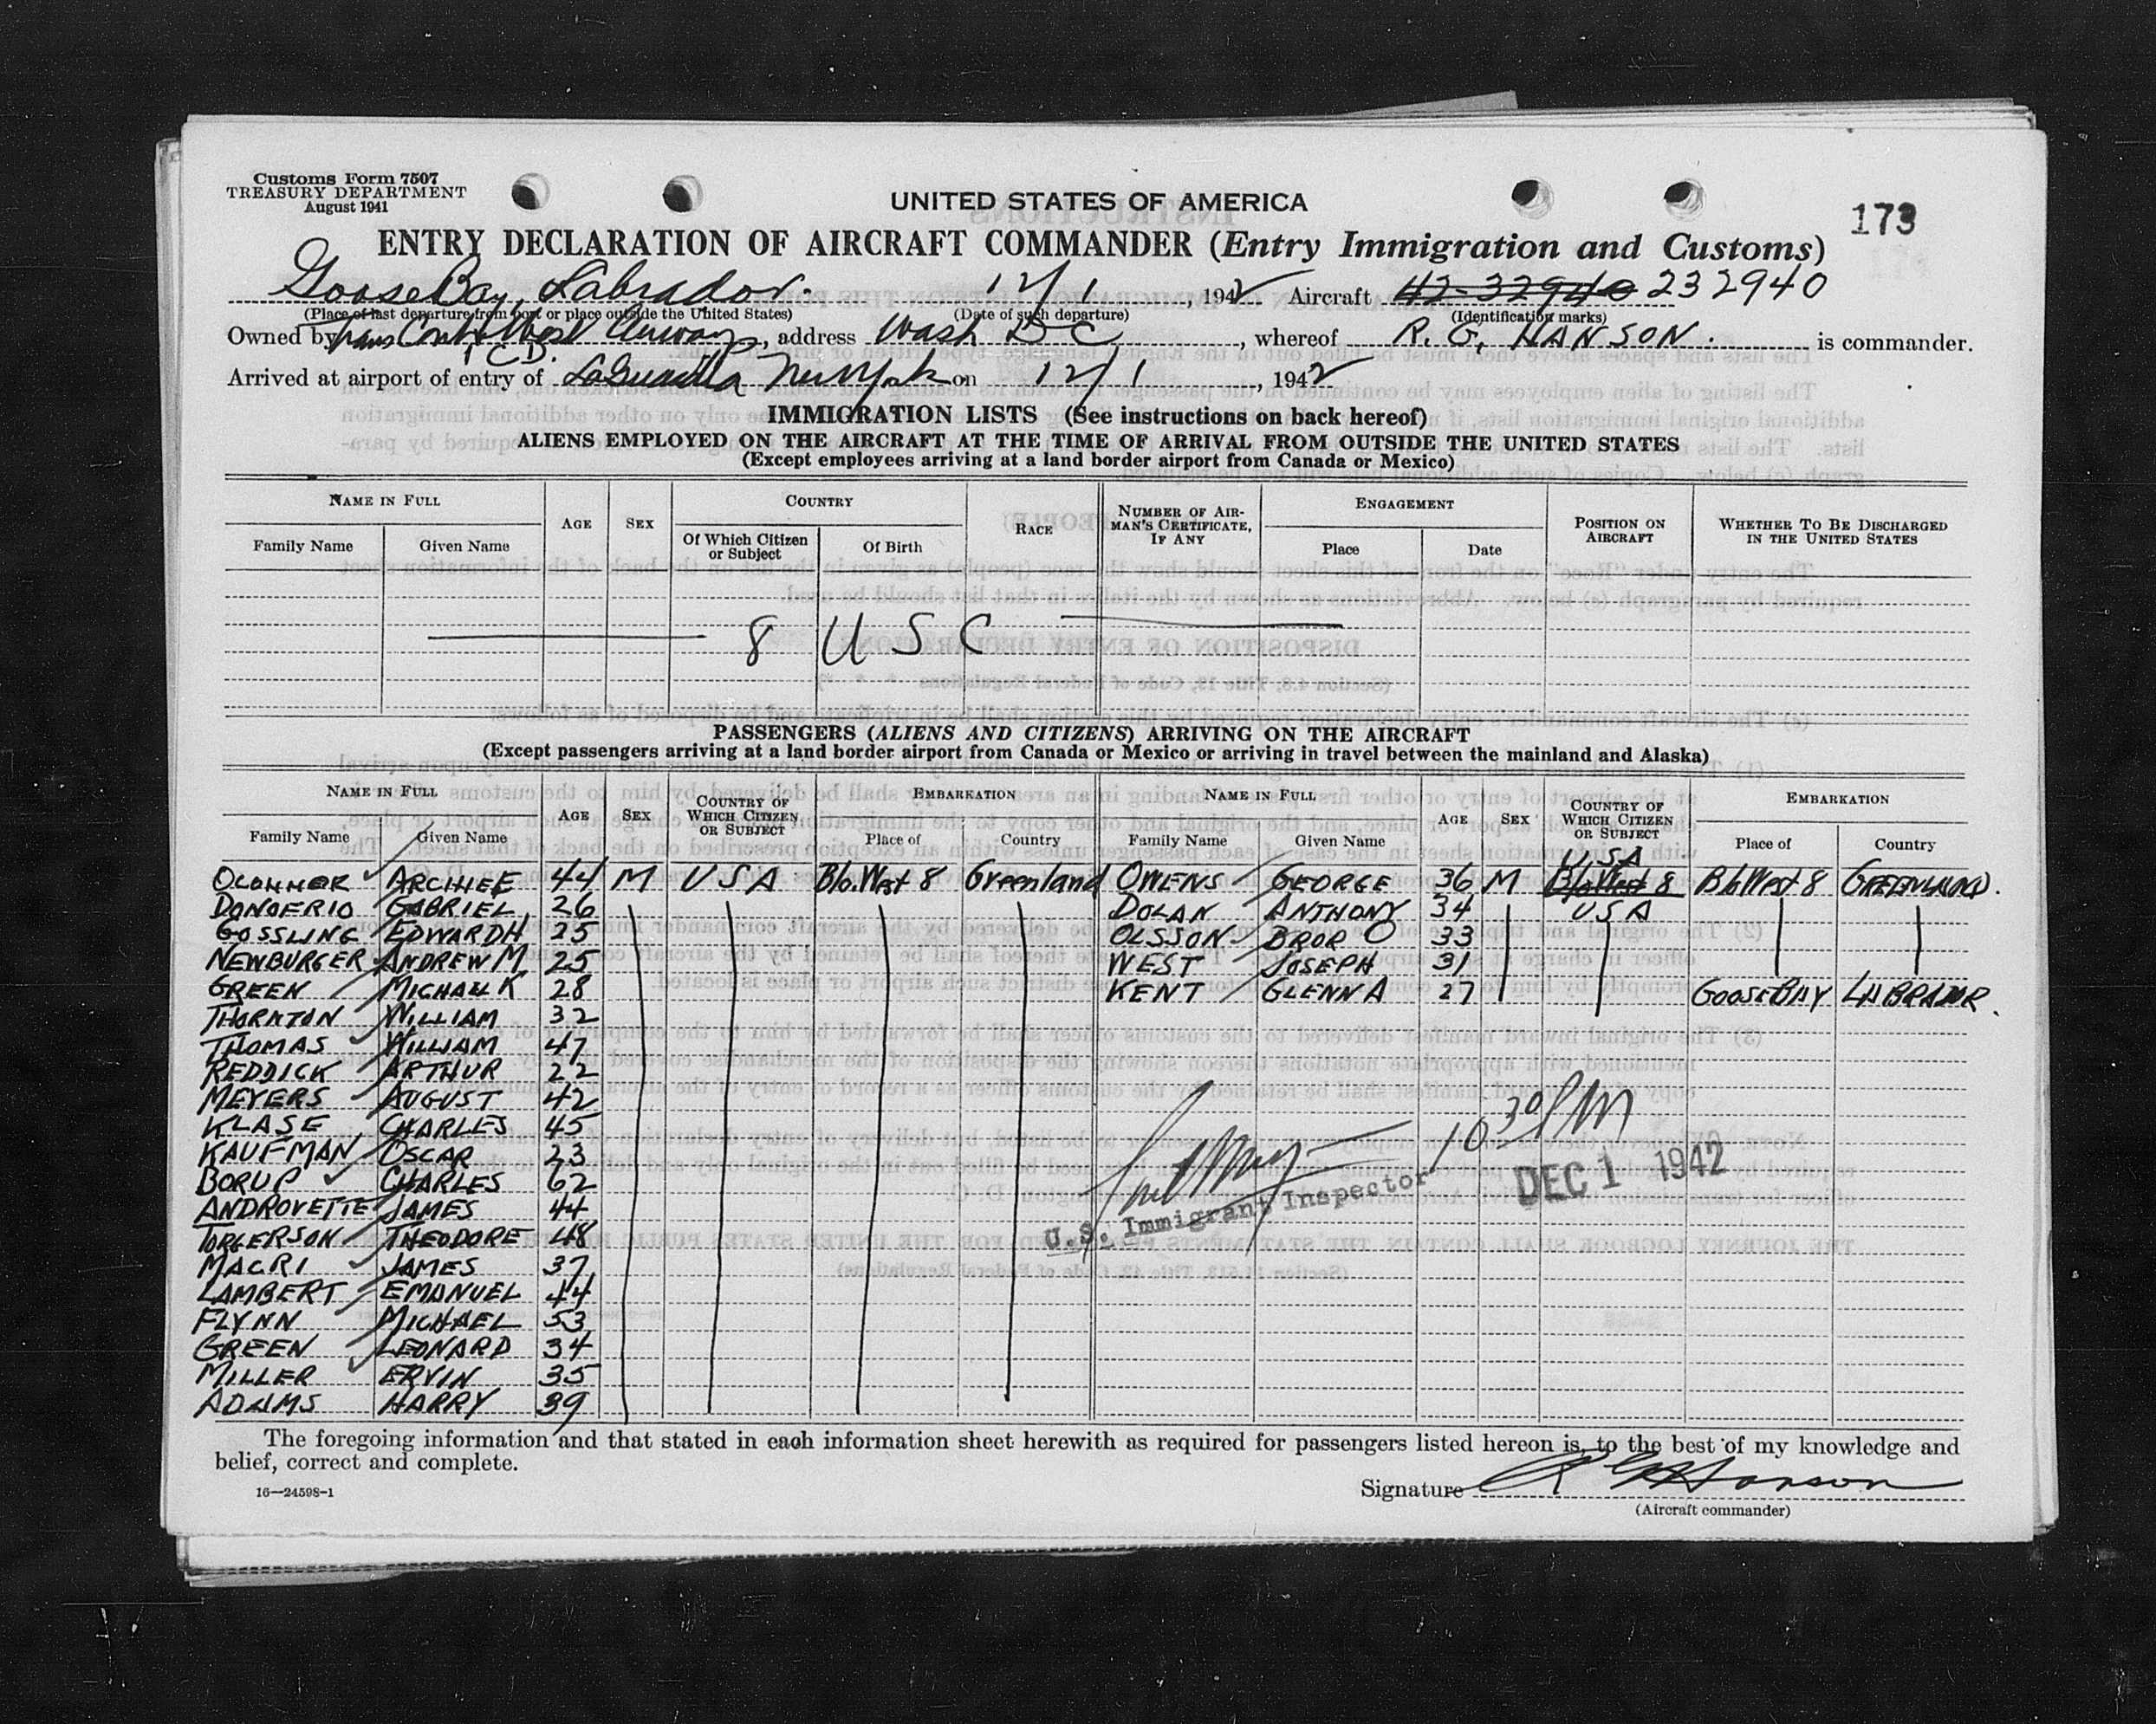 Customs Form 7507
TREASURY DEPARTMENT
August 1941
UNITED STATES OF AMERICA
173
ENTRY DECLARATION OF AIRCRAFT COMMANDER (Entry Immigration and Customs)
Goose Bay, Labrador. 12/1, 1942 Aircraft 42-32940 232940
(Place of last departure from port or place outside the United States) (Date of such departure) (Identification marks)
Owned by Trans Cont & West Airways, address Wash DC, whereof R. G. HANSON. is commander.
I C D.
Arrived at airport of entry of LaGuardia New York on 12/1, 1942
IMMIGRATION LISTS (See instructions on back hereof)
ALIENS EMPLOYED ON THE AIRCRAFT AT THE TIME OF ARRIVAL FROM OUTSIDE THE UNITED STATES
(Except employees arriving at a land border airport from Canada or Mexico)
NAME IN FULL AGE SEX COUNTRY RACE NUMBER OF AIRMAN'S CERTIFICATE, IF ANY ENGAGEMENT POSITION ON AIRCRAFT WHETHER TO BE DISCHARGED IN THE UNITED STATES
Family Name Given Name Of Which Citizen or Subject Of Birth Place Date
8 U S C
PASSENGERS (ALIENS AND CITIZENS) ARRIVING ON THE AIRCRAFT
(Except passengers arriving at a land border airport from Canada or Mexico or arriving in travel between the mainland and Alaska)
NAME IN FULL AGE SEX COUNTRY OF WHICH CITIZEN OR SUBJECT EMBARKATION NAME IN FULL AGE SEX COUNTRY OF WHICH CITIZEN OR SUBJECT EMBARKATION
Family Name Given Name Place of Country Family Name Given Name Place of Country
USA
OCONNOR ARCHIEE 44 M USA Blo.West 8 Greenland OWENS GEORGE 36 M Blo West 8 Blo West 8 GREENLAND.
DONOFRIO GABRIEL 26 DOLAN ANTHONY 34 USA
GOSSLING EDWARD H 25 OLSSON BROR O 33
NEWBURGER ANDREW M 25 WEST JOSEPH 31
GREEN MICHAEL K 28 KENT GLENN A 27 GOOSE BAY LABRADOR.
THORNTON WILLIAM 32
THOMAS WILLIAM 47
REDDICK ARTHUR 22
MEYERS AUGUST 42
KLASE CHARLES 45
KAUFMAN OSCAR 23
BORUP CHARLES 62
ANDROVETTE JAMES 44
TORGERSON THEODORE 48
MACRI JAMES 37
LAMBERT EMANUEL 44
FLYNN MICHAEL 53
GREEN LEONARD 34
MILLER ERVIN 35
ADAMS HARRY 39
10 30 PM
U.S. Immigrant Inspector
DEC 1 1942
The foregoing information and that stated in each information sheet herewith as required for passengers listed hereon is, to the best of my knowledge and
belief, correct and complete.
16—24598-1
Signature R G Hanson
(Aircraft commander)